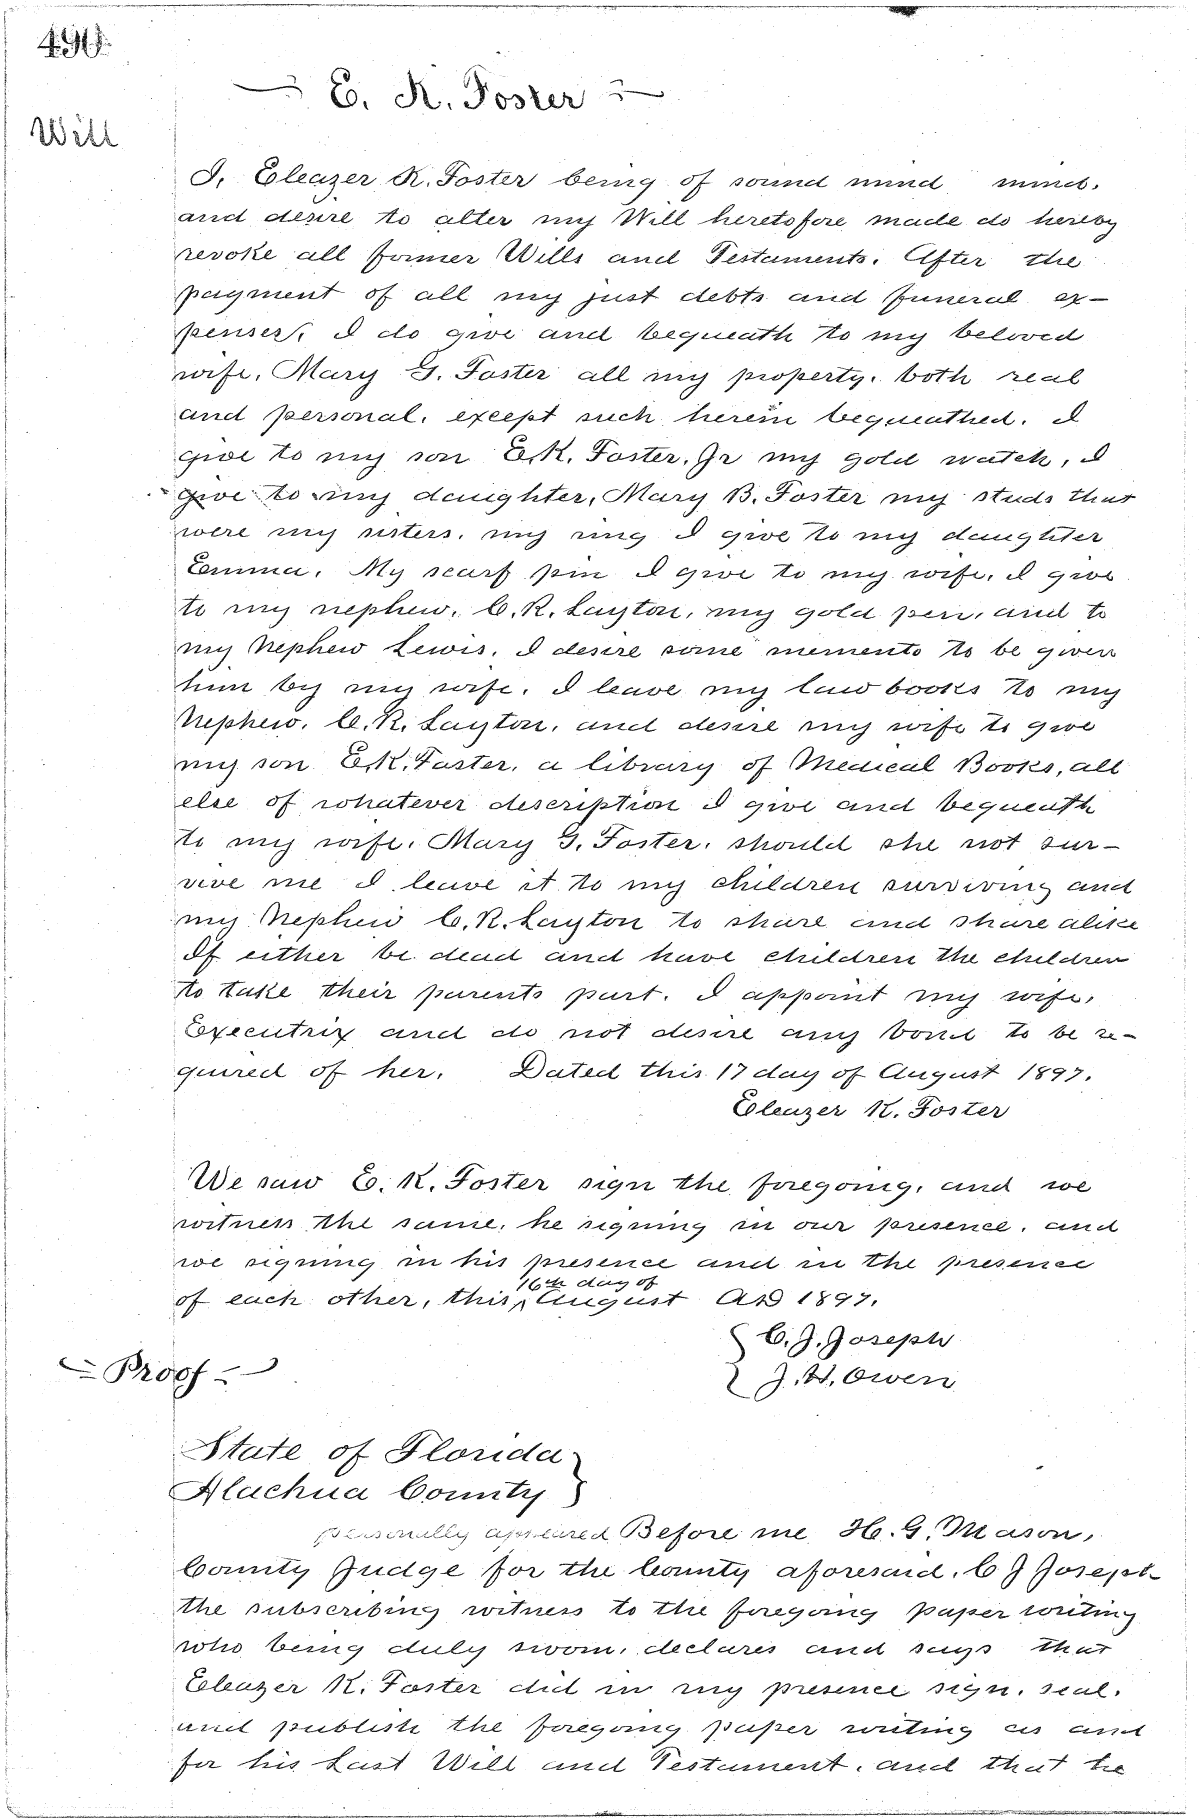 490
E. K. Foster
Will
I, Eleazer K. Foster being of sound mind mind.
and desire to alter my Will heretofore made do hereby
revoke all former Wills and Testaments. After the
payment of all my just debts and funeral ex-
penses, I do give and bequeath to my beloved
wife, Mary G. Foster all my property, both real
and personal, except such herein bequeathed. I
give to my son E.K. Foster, Jr my gold watch, I
give to my daughter, Mary B. Foster my studs that
were my sisters, my ring I give to my daughter
Emma. My scarf pin I give to my wife, I give
to my nephew, C. R. Layton, my gold pen, and to
my Nephew Lewis, I desire some memento to be given
him by my wife. I leave my law books to my
Nephew, C. R. Layton, and desire my wife to give
my son E.K. Foster, a library of Medical Books, all
else of whatever description I give and bequeath
to my wife, Mary G. Foster, should she not sur-
vive me I leave it to my children surviving and
my Nephew C. R. Layton to share and share alike
If either be dead and have children the children
to take their parents part. I appoint my wife,
Executrix and do not desire any bond to be re-
quired of her. Dated this 17 day of August 1897.
Eleazer K. Foster
We saw E. K. Foster sign the foregoing, and we
witness the same, he signing in our presence, and
we signing in his presence and in the presence
16th day of
of each other, this, August AD 1897.
C. J. Joseph
J. W. Owen
Proof
State of Florida
Alachua County
personally appeared Before me H. G. Mason,
County Judge for the County aforesaid, C J Joseph
the subscribing witness to the foregoing paper writing
who being duly sworn, declares and says that
Eleazer K. Foster did in my presence sign, seal,
and publish the foregoing paper writing as and
for his Last Will and Testament, and that he